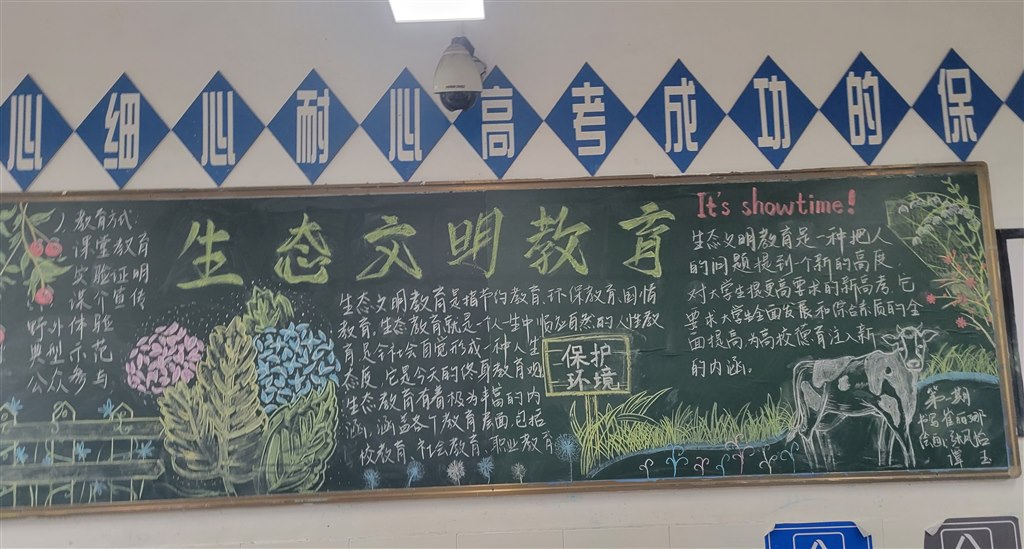 心细心耐心高考成功的保
生态文明教育
It's showtime!
1、教育方式:
课堂教育
实验证明
媒介宣传
野外体验
典型示范
公众参与
生态文明教育是指节约教育、环保教育、国情
教育,生态教育就是一个人一生中顺应自然的人性教
育是全社会自觉形成一种人生
态度,它是今天的终身教育观
生态教育有着极为丰富的内
涵,涵盖各个教育层面,包括
校教育、社会教育、职业教育
保护
环境
生态文明教育是一种把人
的问题提到一个新的高度
对大学生提更高要求的新高考,它
要求大学生全面发展和综合素质的全
面提高为高校德育注入新
的内涵。
第一期
书写:崔丽娜
谭玉